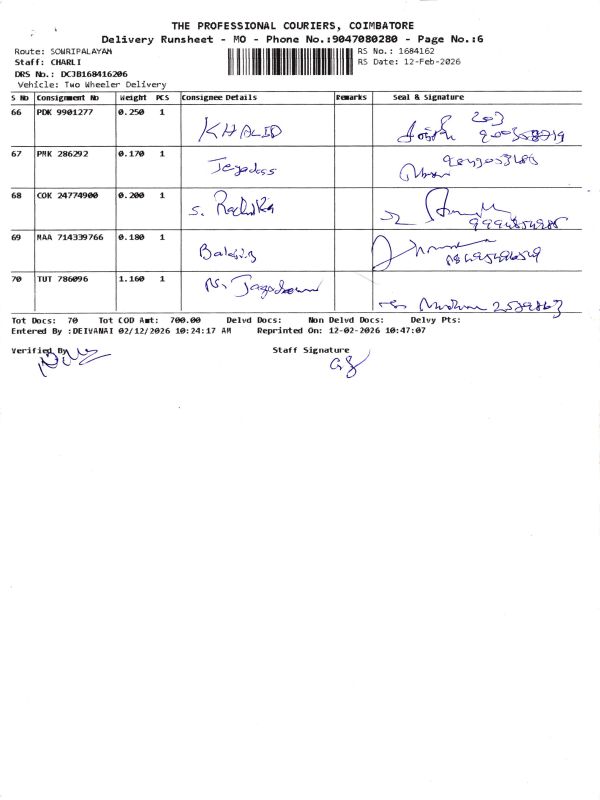 THE PROFESSIONAL COURIERS, COIMBATORE
Delivery Runsheet - MO - Phone No.:9047080280 - Page No.:6
Route: SOWRIPALAYAM
RS No.: 1684162
Staff: CHARLI
RS Date: 12-Feb-2026
DRS No.: DCJB168416206
Vehicle: Two Wheeler Delivery
S No Consignment No Weight PCS Consignee Details Remarks Seal & Signature
66 PDK 9901277 0.250 1 KHALID 203
67 PMK 286292 0.170 1 Jegadoss
68 COK 24774900 0.200 1 S. Radhika
69 MAA 714339766 0.180 1
70 TUT 786096 1.160 1
Tot Docs: 70 Tot COD Amt: 700.00 Delvd Docs: Non Delvd Docs: Delvy Pts:
Entered By :DEIVANAI 02/12/2026 10:24:17 AM Reprinted On: 12-02-2026 10:47:07
Verified By Staff Signature